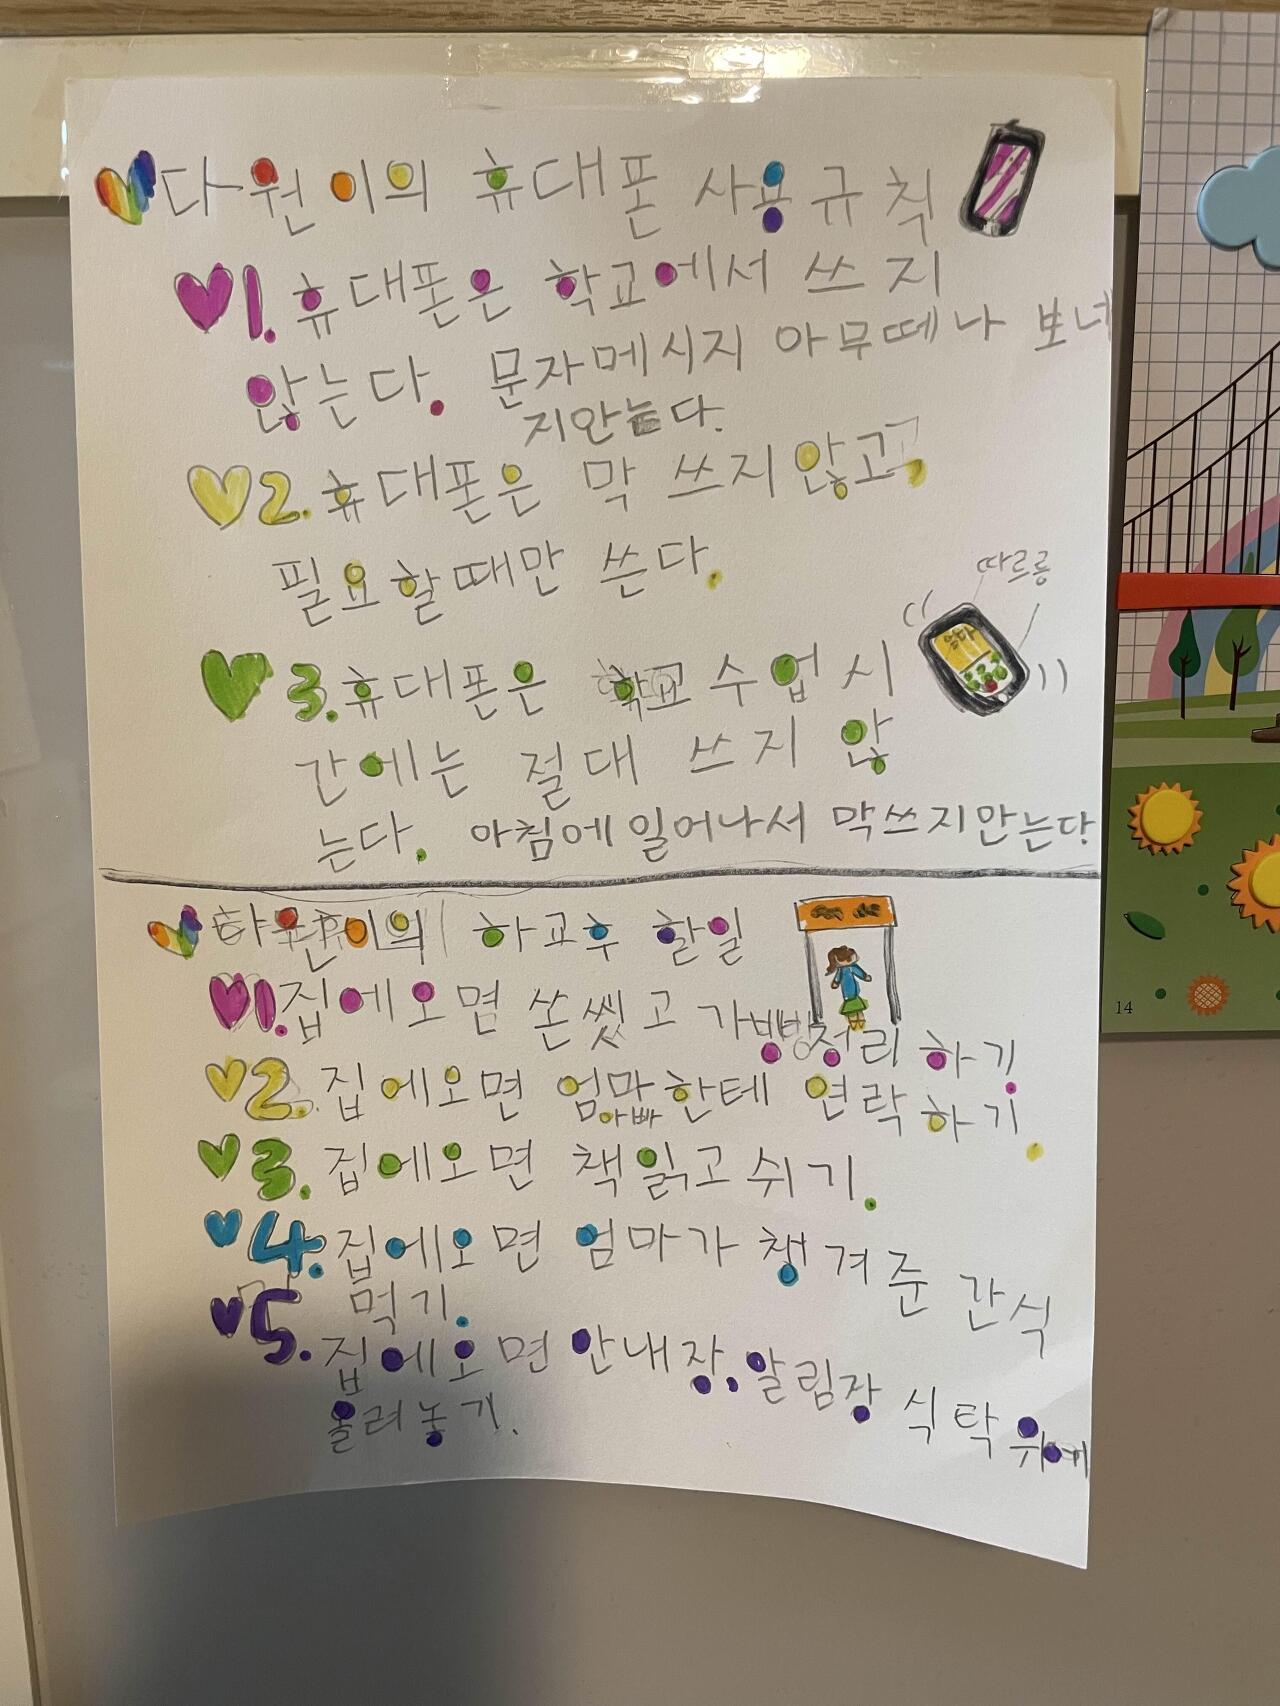 다원이의 휴대폰 사용규칙
1. 휴대폰은 학교에서 쓰지
않는다. 문자메시지 아무떼나 보너
지안는다.
2. 휴대폰은 막 쓰지 않고
필요할때만 쓴다.
따르릉
엄마
3. 휴대폰은 학교 수업 시
간에는 절대 쓰지 않
는다. 아침에 일어나서 막쓰지안는다
다원이의 하교후 할일
1. 집에오몀 쏜씼고 가방정리 하기.
2. 집에오면 엄마한테 연락하기.
아빠
3. 집에오면 책읽고 쉬기.
4. 집에오면 엄마가 챙겨준 간식
먹기.
5. 집에오면 안내장, 알림장 식탁 위에
올려놓기.
14